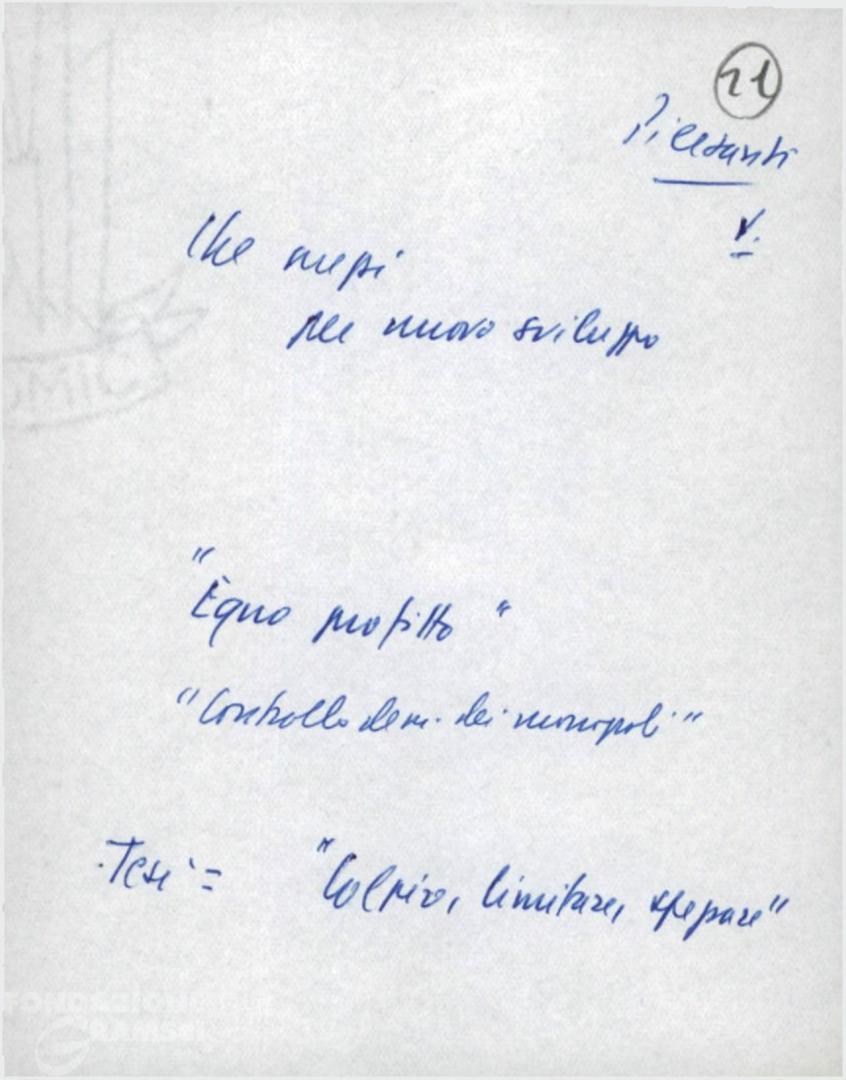 21
V.
Che
per nuovo sviluppo
"Equo profitto"
"Controllo dem. dei monopoli"
Tesi = "Colpire, limitare, spezzare"
FONDAZIONE
GRAMSCI